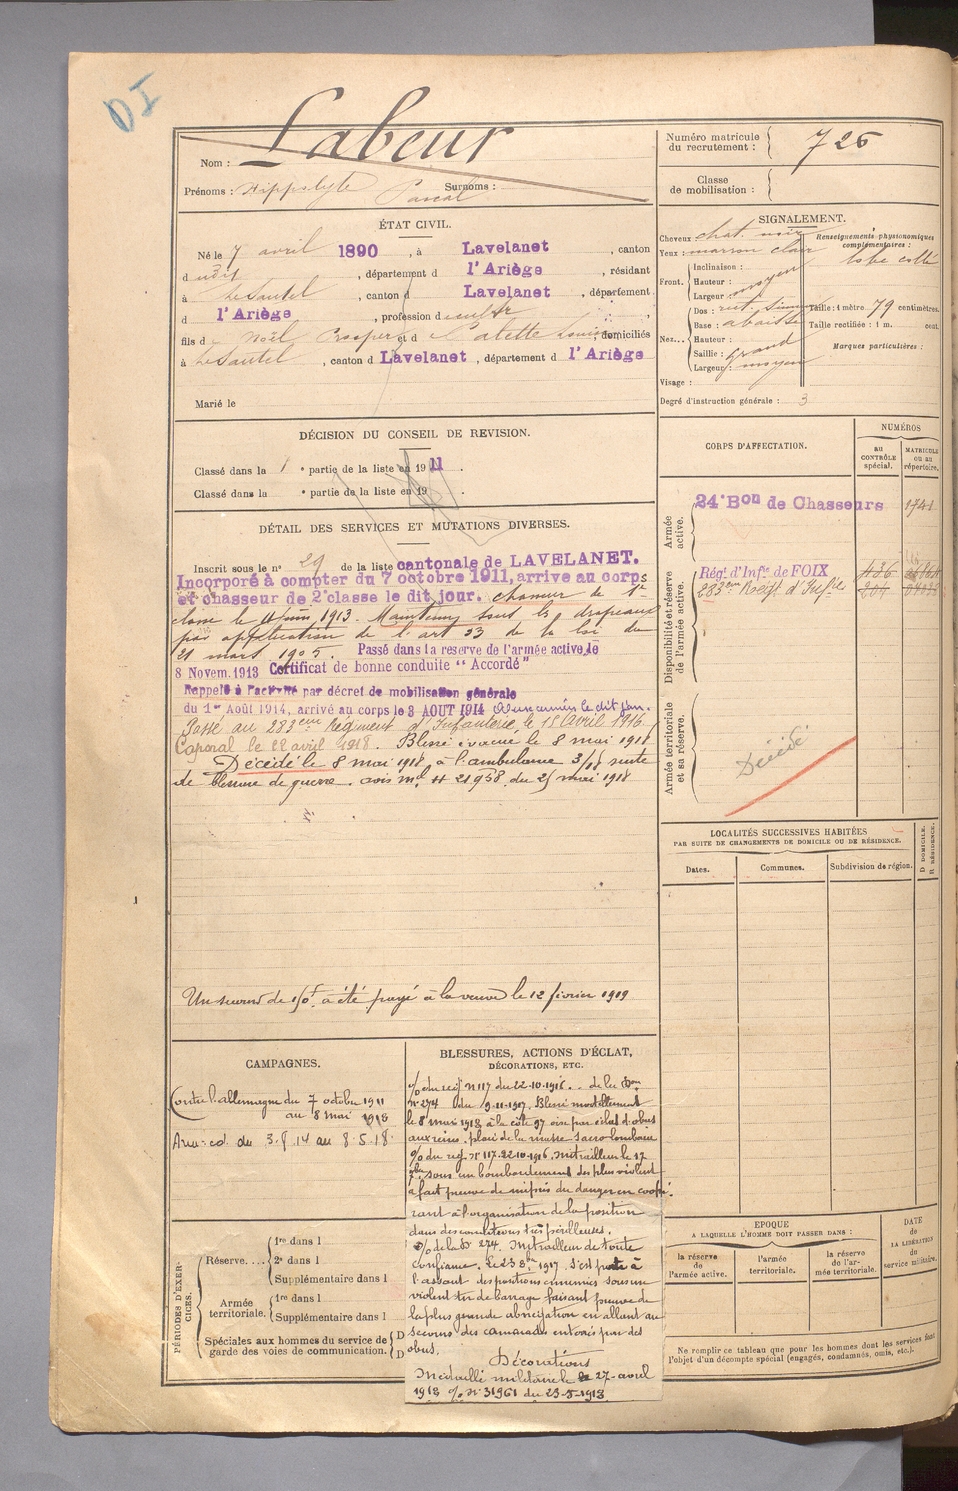 DI
Nom : Labeur
Prénoms : Hippolyte Pascal Surnoms :
Numéro matricule du recrutement : 726
Classe de mobilisation :
ÉTAT CIVIL.
Né le 7 avril 1890, à Lavelanet, canton
dudit, département d l'Ariège, résidant
à Le Sautel, canton d Lavelanet, département
d l'Ariège, profession de cultr,
fils d Noël Prosper et d Palette Louise, domiciliés
à Le Sautel, canton d Lavelanet, département d l'Ariège
Marié le
SIGNALEMENT.
Cheveux chat. noir
Yeux : marron clair
Front. Inclinaison :
Hauteur :
Largeur : moyen
Nez... Dos : rect. sinueux
Base : abaissée
Hauteur :
Saillie : grand
Largeur : moyen
Visage :
Renseignements physionomiques complémentaires :
lobe collé
Taille : 1 mètre 79 centimètres.
Taille rectifiée : 1 m. cent.
Marques particulières :
Degré d'instruction générale : 3
DÉCISION DU CONSEIL DE REVISION.
Classé dans la 1e partie de la liste en 1911.
Classé dans la e partie de la liste en 19 .
DÉTAIL DES SERVICES ET MUTATIONS DIVERSES.
Inscrit sous le no 29 de la liste cantonale de LAVELANET.
Incorporé à compter du 7 octobre 1911, arrive au corps
et chasseur de 2e classe le dit jour. chasseur de 1re
classe le 11 juin 1913. Maintenu sous les drapeaux
par application de l'art 33 de la loi du
21 mars 1905. Passé dans la reserve de l'armée active, le
8 Novem. 1913 Certificat de bonne conduite "Accordé"
Rappelé à l'activité par décret de mobilisation générale
du 1er Août 1914, arrivé au corps le 3 AOUT 1914 Aux armées le dit jour.
Passé au 283eme Régiment d'Infanterie le 15 avril 1916.
Caporal le 22 avril 1918. Blessé évacué le 8 mai 1918
Décédé le 8 mai 1918, à l'ambulance 3/18 suite
de blessure de guerre. avis ml H 21958 du 25 mai 1918
Un secours de 150f a été payé à la veuve le 12 février 1919
CORPS D'AFFECTATION.
NUMÉROS
au CONTRÔLE spécial.
MATRICULE ou au répertoire.
Armée active.
24e Bon de Chasseurs 1741
Disponibilité et réserve de l'armée active.
Régt d'Infie de FOIX 486
283eme Régt d'Infie 204
Armée territoriale et sa réserve.
Décédé
LOCALITÉS SUCCESSIVES HABITÉES
PAR SUITE DE CHANGEMENTS DE DOMICILE OU DE RÉSIDENCE.
Dates. Communes. Subdivision de région. D DOMICILE. R RÉSIDENCE.
CAMPAGNES.
Contre l'allemagne du 7 octobre 1911
au 8 mai 1918
Aux : cd. du 3.8.14 au 8.5.18.
BLESSURES, ACTIONS D'ÉCLAT,
DÉCORATIONS, ETC.
o/o du régt n 117 du 22.10.1916. - de la Don
n° 274 du 9.11.1917. Blessé mortellement
le 8 mai 1918 à la côte 97 oise par éclat d'obus
aux reins. plaie de la masse sacro lombaire
o/o du reg. n° 117. 22.10.1916. mitrailleur le 17
7bre sous un bombardement des plus violent
a fait preuve de mépris du danger en coopé-
rant à l'organisation de la position
dans des conditions très périlleuses.
o/o de la D 274. Mitrailleur de toute
confiance. Le 23 8bre 1917 s'est porté à
l'assaut des positions ennemies sous un
violent tir de barrage faisant preuve de
la plus grande abnégation en allant au
secours des camarades enterrés par des
obus.
Décorations
Médaille militaire le 27 avril
1918 o/o n° 31961 du 23-5-1918
PÉRIODES D'EXERCICES.
Réserve.... 1re dans l
2e dans l
Supplémentaire dans l
Armée territoriale. 1re dans l
Supplémentaire dans l
Spéciales aux hommes du service de garde des voies de communication. D
D
EPOQUE
A LAQUELLE L'HOMME DOIT PASSER DANS :
la réserve de l'armée active.
l'armée territoriale.
la réserve de l'armée territoriale.
DATE de LA LIBÉRATION du service militaire.
Ne remplir ce tableau que pour les hommes dont les services font
l'objet d'un décompte spécial (engagés, condamnés, omis, etc.).